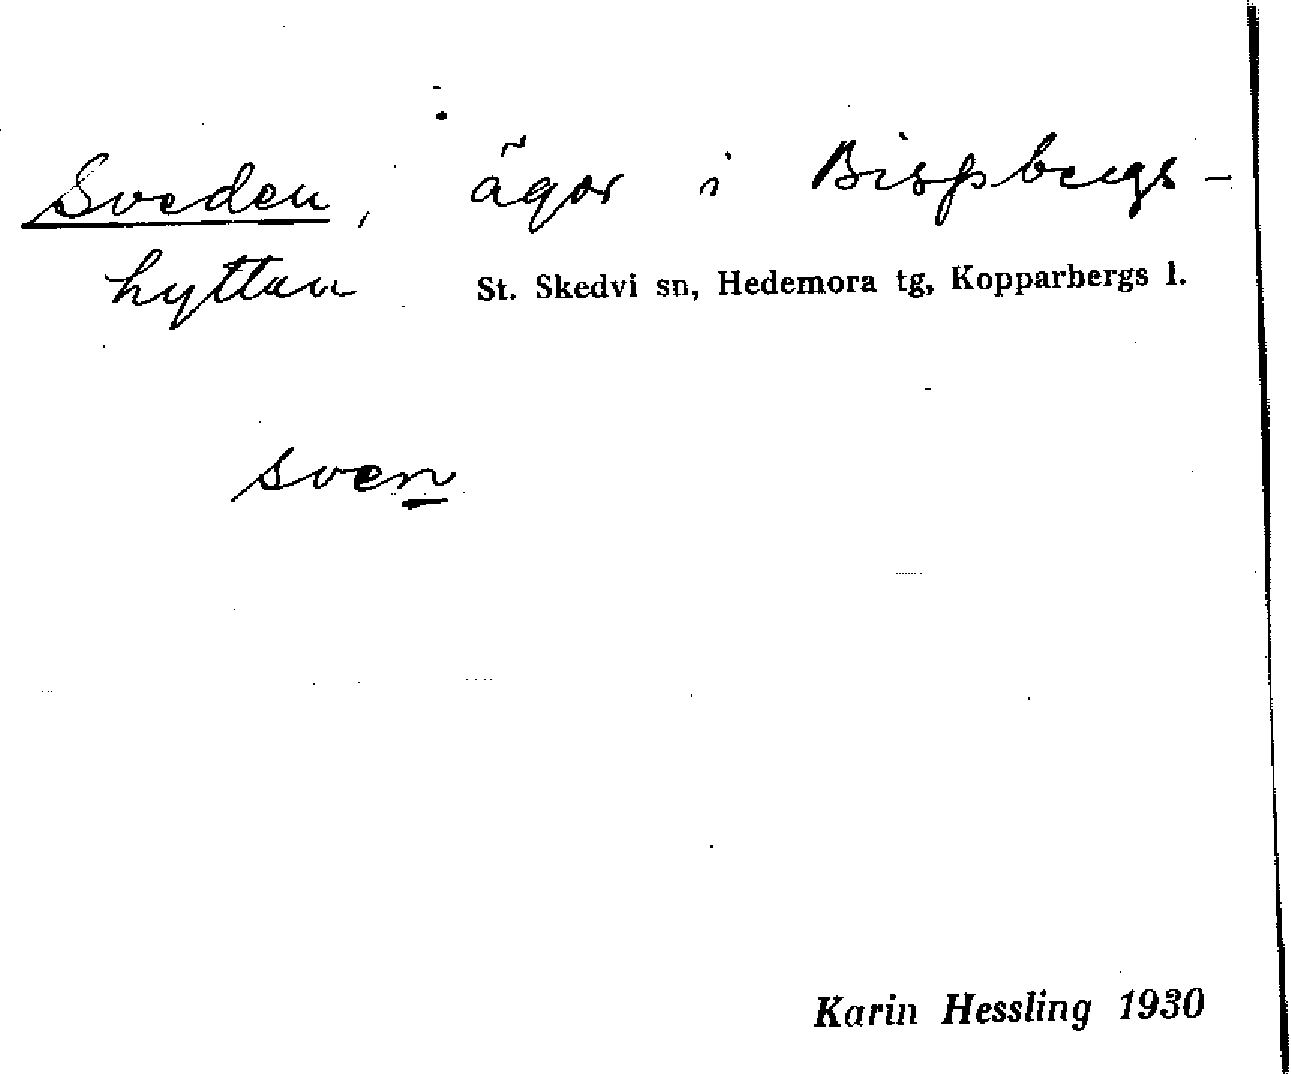 Sveden, ägor i Bispbergs-
hyttan St. Skedvi sn, Hedemora tg, Kopparbergs l.
sven
Karin Hessling 1930